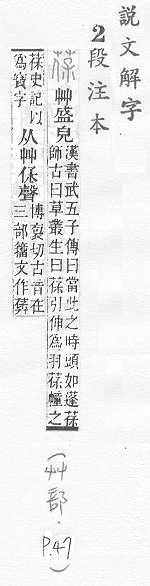 說文解字
2段注本
葆 艸盛皃
漢書武五子傳曰當此之時頭如蓬葆
師古曰草叢生曰葆引伸爲羽葆幢之
葆史記以
爲寶字
从艸保聲
博袌切古音在
三部籒文作
(艸部．P.47)